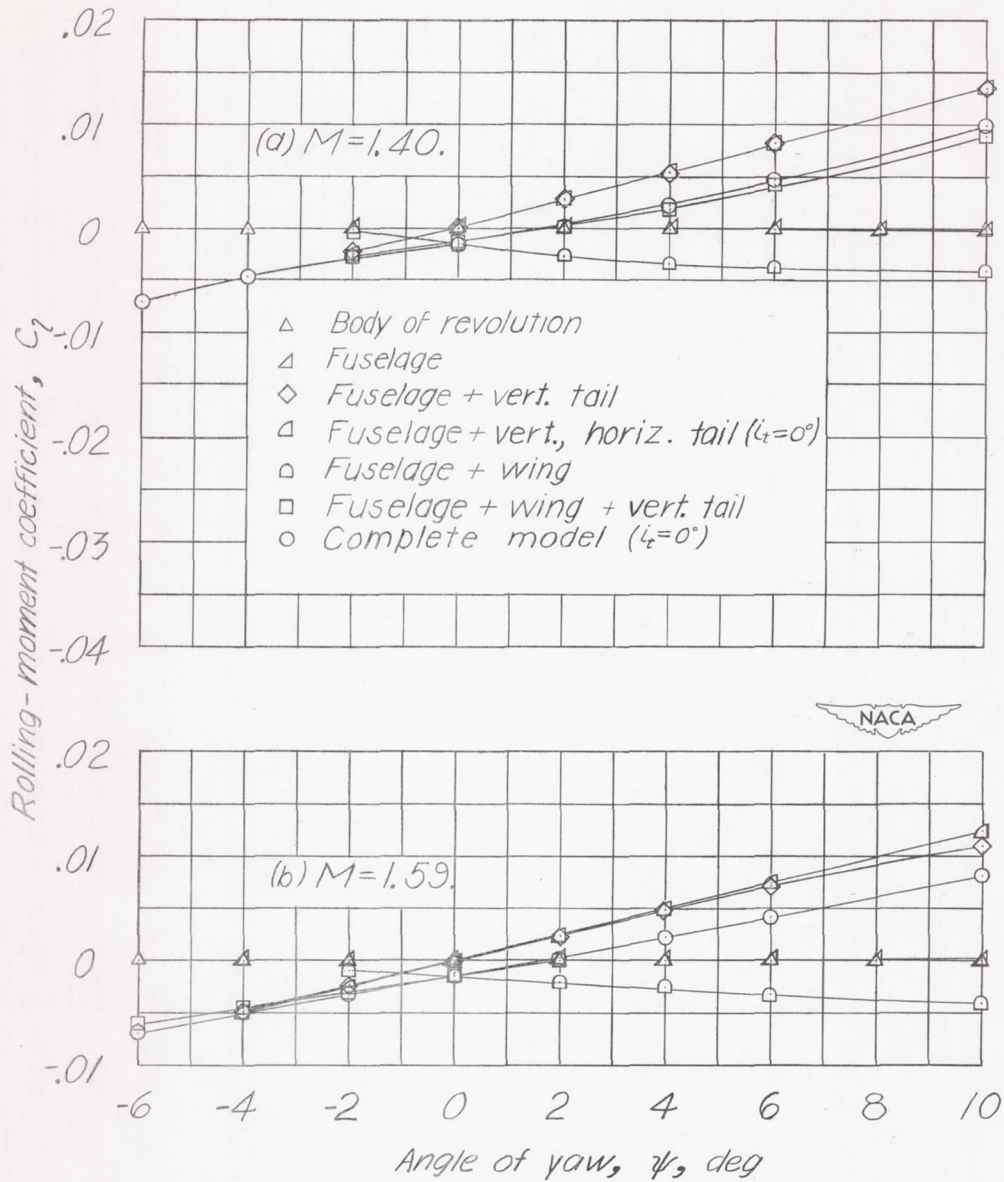 .02
.01
(a) M=1.40.
0
-.01
-.02
-.03
-.04
Body of revolution
Fuselage
Fuselage + vert. tail
Fuselage + vert., horiz. tail (iₜ=0°)
Fuselage + wing
Fuselage + wing + vert. tail
Complete model (iₜ=0°)
Rolling-moment coefficient, Cₗ
NACA
.02
.01
(b) M=1.59.
0
-.01
-6 -4 -2 0 2 4 6 8 10
Angle of yaw, ψ, deg